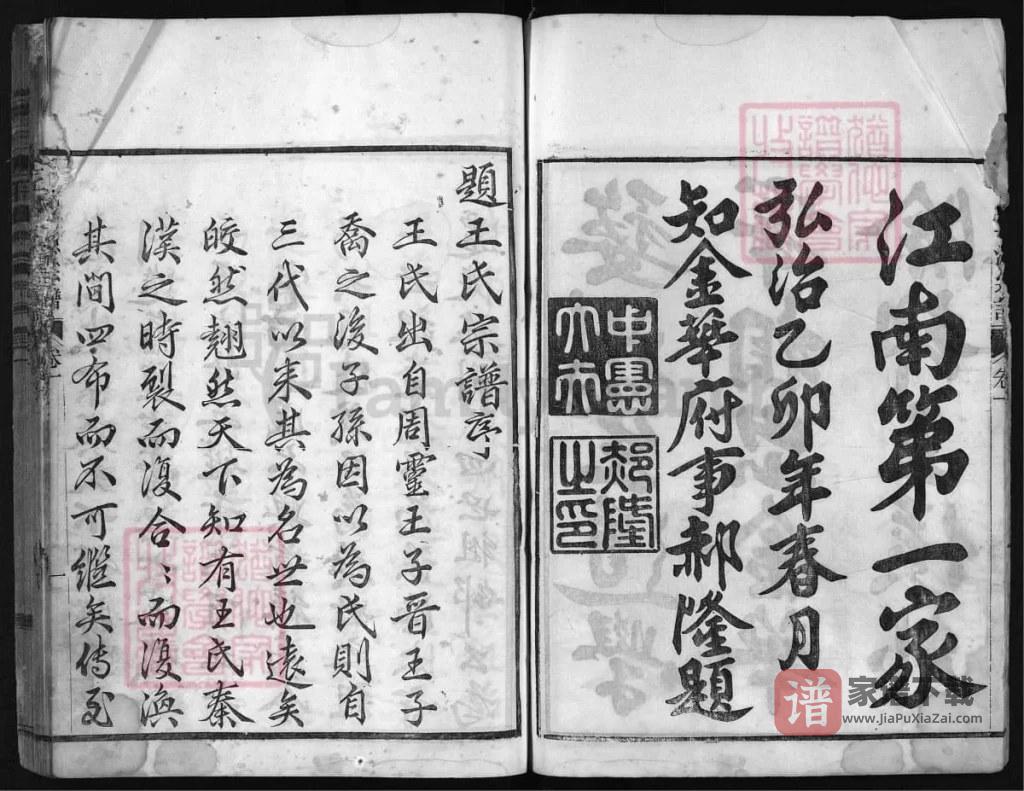 江南第一家
弘治乙卯年春月
知金華府事郝隆題
中憲大夫
郝隆之印
題王氏宗譜序
王氏出自周靈王子晉王子
喬之後子孫因以為氏則自
三代以来其為名世也遠矣
皎然翹然天下知有王氏秦
漢之時裂而復合〻而復渙
其間四布而不可繼矣傳至
家谱下载
www.JiaPuXiaZai.com
谱